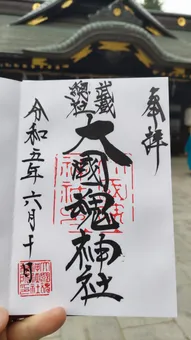 奉拝
武蔵
總社
大國魂神社
令和五年六月十日